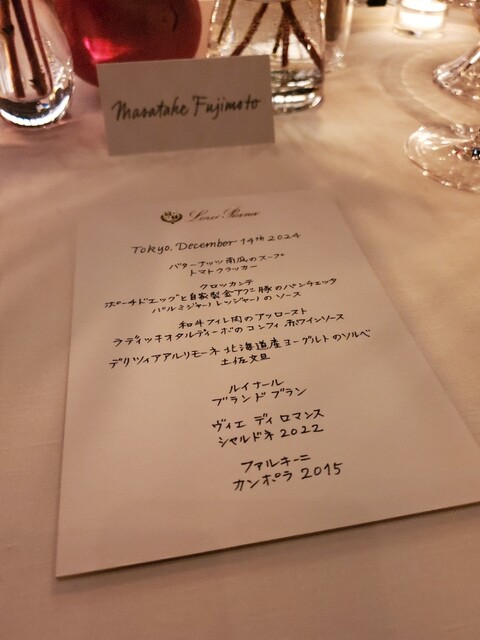 Masatake Fujimoto
Loro Piana
Tokyo. December 14th 2024
バターナッツ南瓜のスープ
トマトクラッカー
クロッカンテ
ポーチドエッグと自家製金アグー豚のパンチェッタ
パルミジャーノレッジャーノのソース
和牛フィレ肉のアッロースト
ラディッキオタルディーボのコンフィ 赤ワインソース
デリツィアアルリモーネ 北海道産ヨーグルトのソルベ
土佐文旦
ルイナール
ブランドブラン
ヴィエ ディ ロマンス
シャルドネ 2022
ファルキーニ
カンポラ 2015